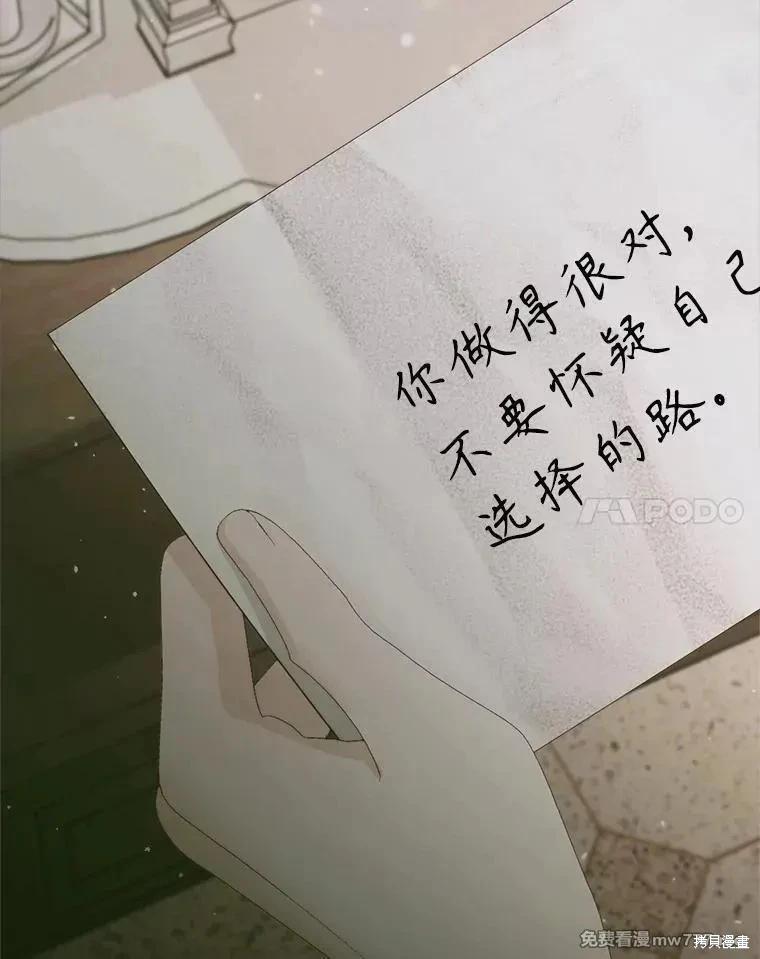 你做得很对,
不要怀疑自己
选择的路。
PODO
免费看漫mw7
拷貝漫畫